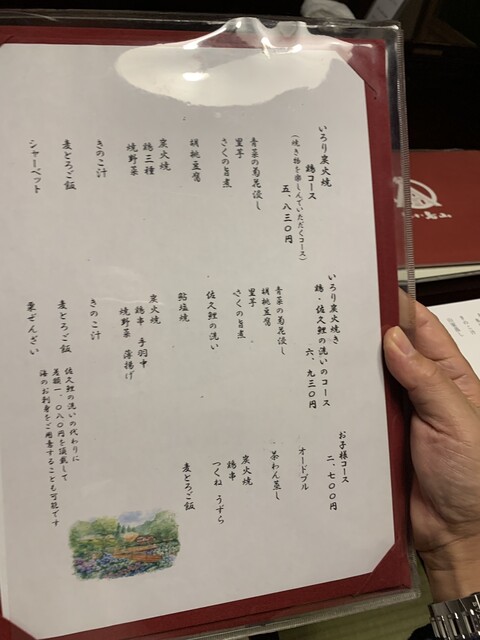 いろり炭火焼
鶏コース
(焼き物を楽しんでいただくコース)
五、八三〇円
青菜の菊花浸し
里芋
さくの旨煮
胡桃豆腐
炭火焼
鶏三種
焼野菜
きのこ汁
麦とろご飯
シャーベット
いろり炭火焼き
鶏・佐久鯉の洗いのコース
六、九三〇円
青菜の菊花浸し
胡桃豆腐
里芋
さくの旨煮
佐久鯉の洗い
鮎塩焼
炭火焼
鶏串 手羽中
焼野菜 薄揚げ
きのこ汁
麦とろご飯
栗ぜんざい
佐久鯉の洗いの代わりに
差額一、〇八〇円を頂戴して
海のお刺身をご用意することも可能です
お子様コース
二、七〇〇円
オードブル
茶わん蒸し
炭火焼
鶏串
つくね うずら
麦とろご飯